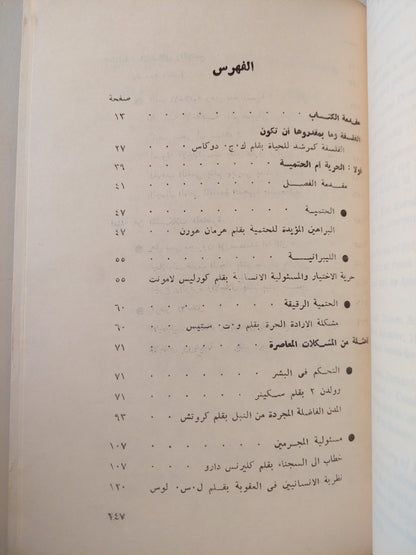 الفهرس
صفحة
مقدمة الكتاب . . . . . . . . ١٣
الفلسفة وما بمقدورها أن تكون
الفلسفة كمرشد للحياة بقلم ك.ج. دوكاس . . . ٢٧
أولا : الحرية أم الحتمية . . . . . . . ٣٩
مقدمة الفصل . . . . . . . ٤١
● الحتمية . . . . . . . . ٤٧
البراهين المؤيدة للحتمية بقلم هرمان هورن . . ٤٧
● الليبراتية . . . . . . . ٥٥
حرية الاختيار والمسئولية الانسانية بقلم كورليس لامونت ٥٥
● الحتمية الرقيقة . . . . . . . ٦٠
مشكلة الارادة الحرة بقلم و.ت. ستيس . . . ٦٠
أمثلة من المشكلات المعاصرة . . . . . . ٧١
● التحكم فى البشر . . . . . . ٧١
رولدن ٢ بقلم سكينر . . . . . . ٧١
المدن الفاضلة المجردة من النبل بقلم كروتش . . ٩٣
● مسئولية المجرمين . . . . . . ١٠٧
خطاب الى السجناء بقلم كليرنس دارو . . . ١٠٧
نظرية الانسانيين فى العقوبة بقلم ل.س. لوس ١٢٠
٦٤٧